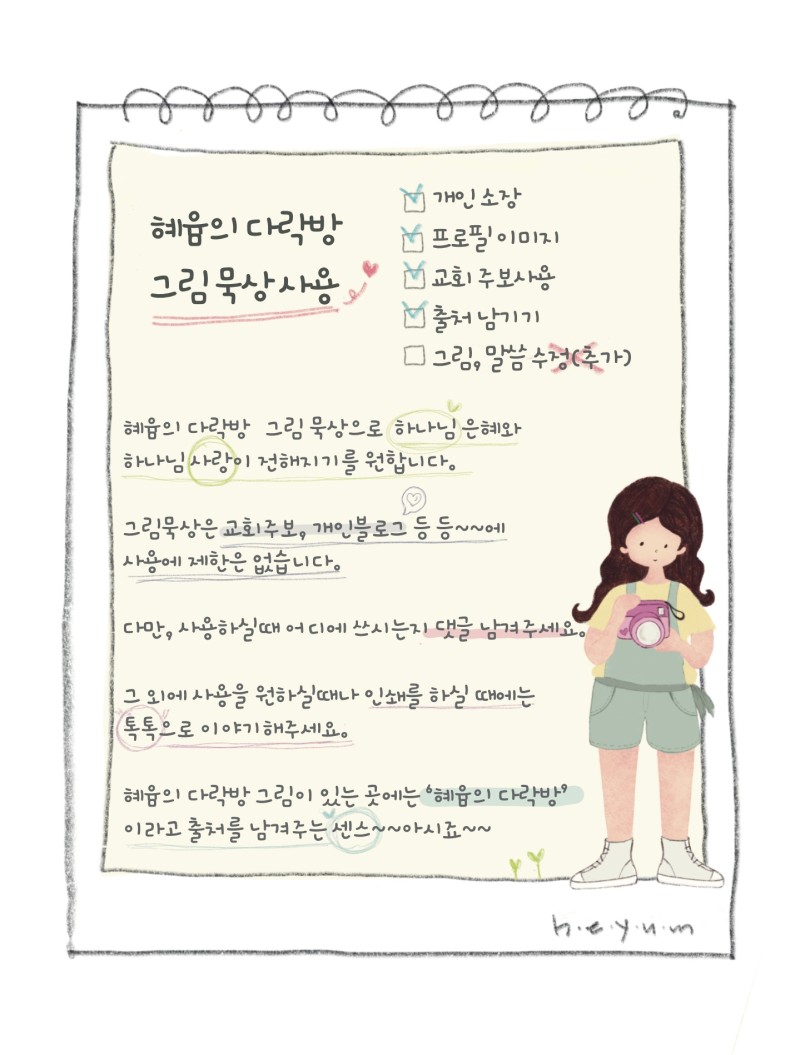 혜윰의 다락방
그림 묵상 사용
개인 소장
프로필 이미지
교회 주보사용
출처 남기기
그림, 말씀 수정(추가)
혜윰의 다락방 그림 묵상으로 하나님 은혜와
하나님 사랑이 전해지기를 원합니다.
그림묵상은 교회주보, 개인블로그 등 등~~에
사용에 제한은 없습니다.
다만, 사용하실때 어디에 쓰시는지 댓글 남겨주세요.
그 외에 사용을 원하실때나 인쇄를 하실 때에는
톡톡으로 이야기해주세요.
혜윰의 다락방 그림이 있는 곳에는 '혜윰의 다락방'
이라고 출처를 남겨주는 센스~~아시죠~~
h.e.y.u.m